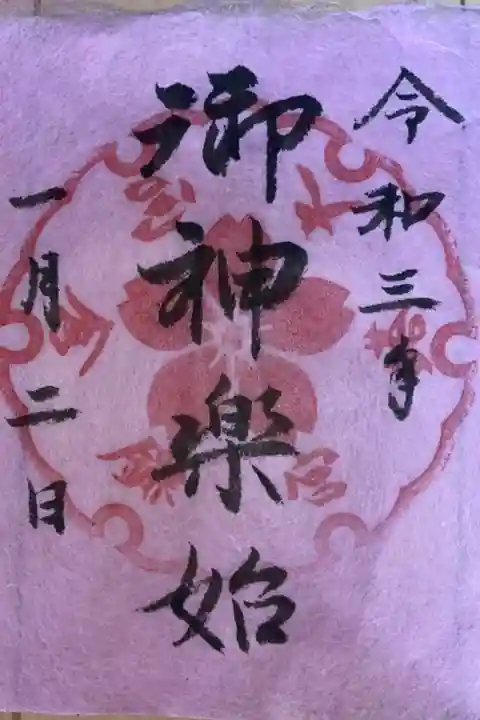 令和三年
御神楽始
一月二日